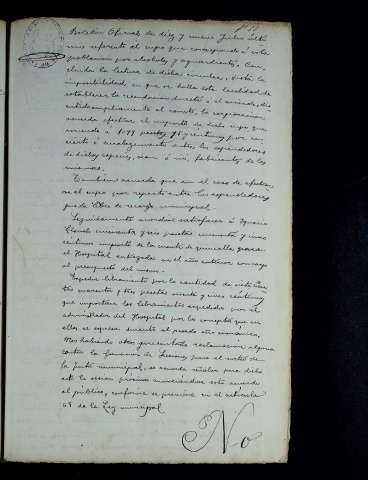 Boletín Oficial de diez y nueve Julio últi
mo referente al cupo que corresponde á esta
poblacion por alcohol y aguardiente. Con
cluida la lectura de dichas circular, vista la
imposibilidad en que se halla esta localidad de
establecer la recaudacion directa ó el arriendo, dis
cutido ampliamente el asunto, la corporacion
acuerda efectuar el importe de dicho cupo que
asciende á 1.177 pesetas 75 céntimos por con
cierto ó encabezamiento entre los expendedores
de dichas especies, sean ó nó fabricantes de las
mismas.
Tambien acuerda que en el caso de efectuar
se el cupo por reparto entre los expendedores
queda libre de recargo municipal.
Seguidamente acordose satisfacer á Ignacio
cincuenta y seis pesetas cincuenta y cinco
céntimos importe de la cuenta de quincalla, para
el Hospital entregada en el año anterior con cargo
al presupuesto del mismo.
Expedir libramiento por la cantidad de
cuarenta y tres pesetas veinte y cinco céntimos
que importan los libramientos expedidos por el
administrador del Hospital por los conceptos que en
ellos se expresa durante el pasado año económico.
No habiendose presentado reclamacion alguna
contra la formacion de Secciones para el sorteo de
la Junta municipal, se acuerda señalar para dicho
acto la sesion próxima anunciandose este acuerdo
al público, conforme se previene en el artículo
68 de la Ley municipal
No